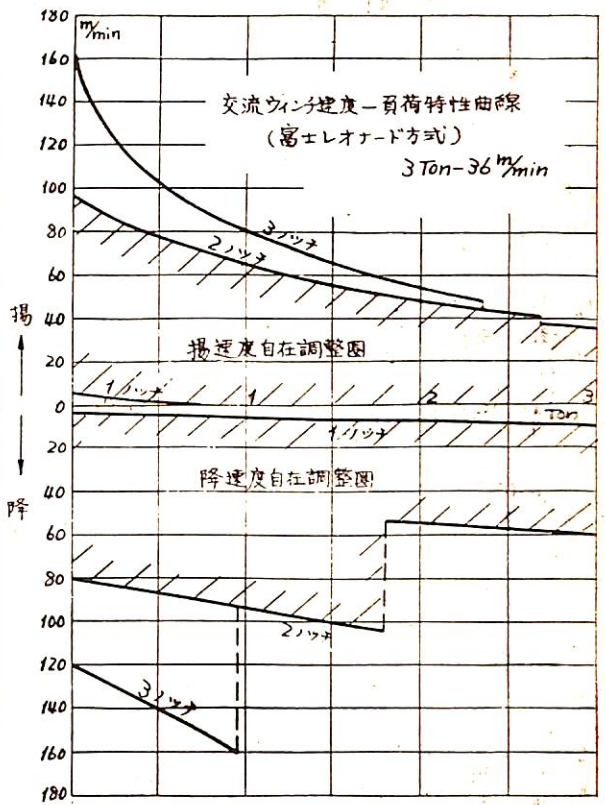 180
m/min
160
140
120
100
80
60
40
20
0
20
40
60
80
100
120
140
160
180
交流ウィンチ速度－負荷特性曲線
(富士レオナード方式)
3 Ton-36 m/min
3ノッチ
2ノッチ
揚
揚速度自在調整圏
1ノッチ
1
2
3
Ton
1ノッチ
降速度自在調整圏
降
2ノッチ
3ノッチ